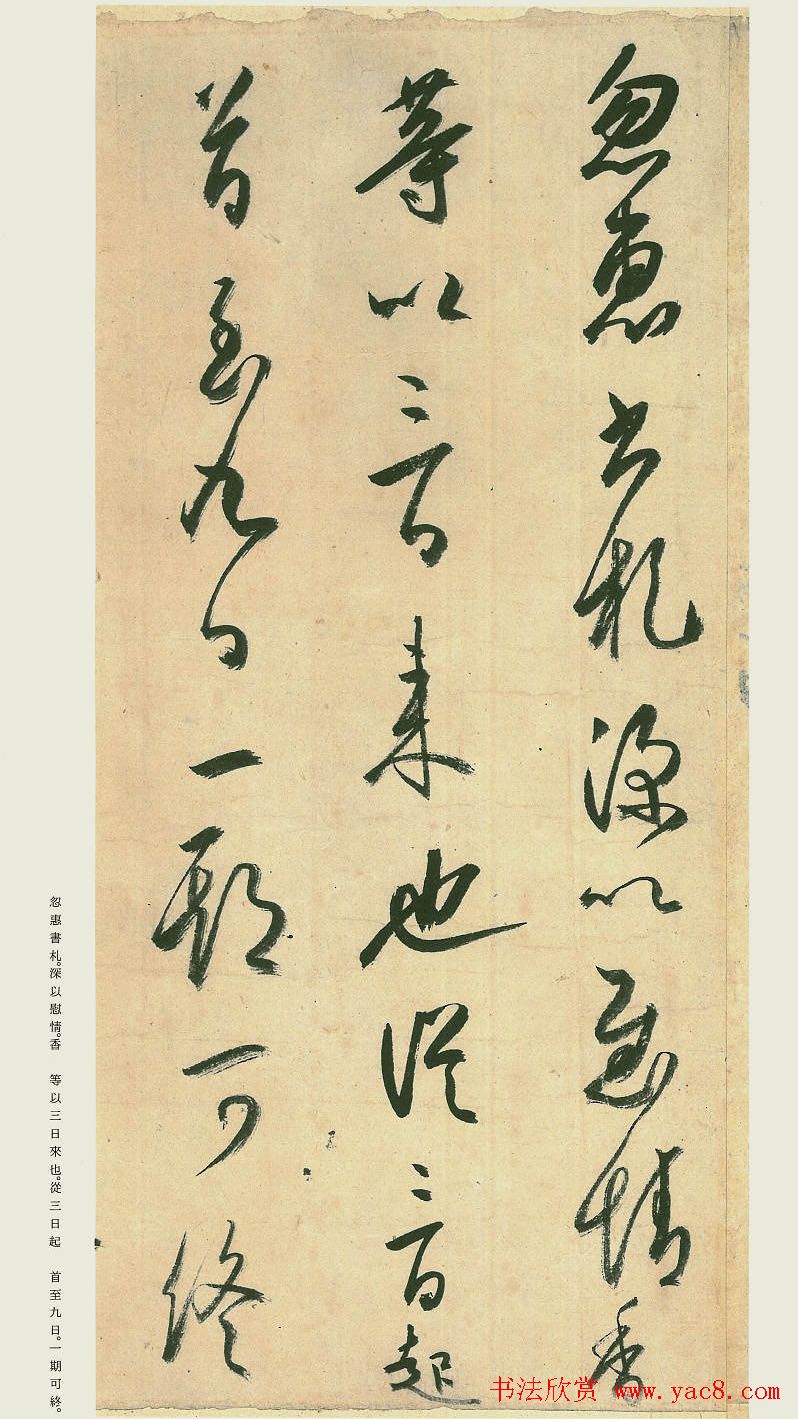 忽惠書札深以慰情香
等以三日来也従三日起
首至九日一期可終
忽惠書札。深以慰情。香 等以三日來也。從三日起 首至九日。一期可終。
书法欣赏 www.yac8.com